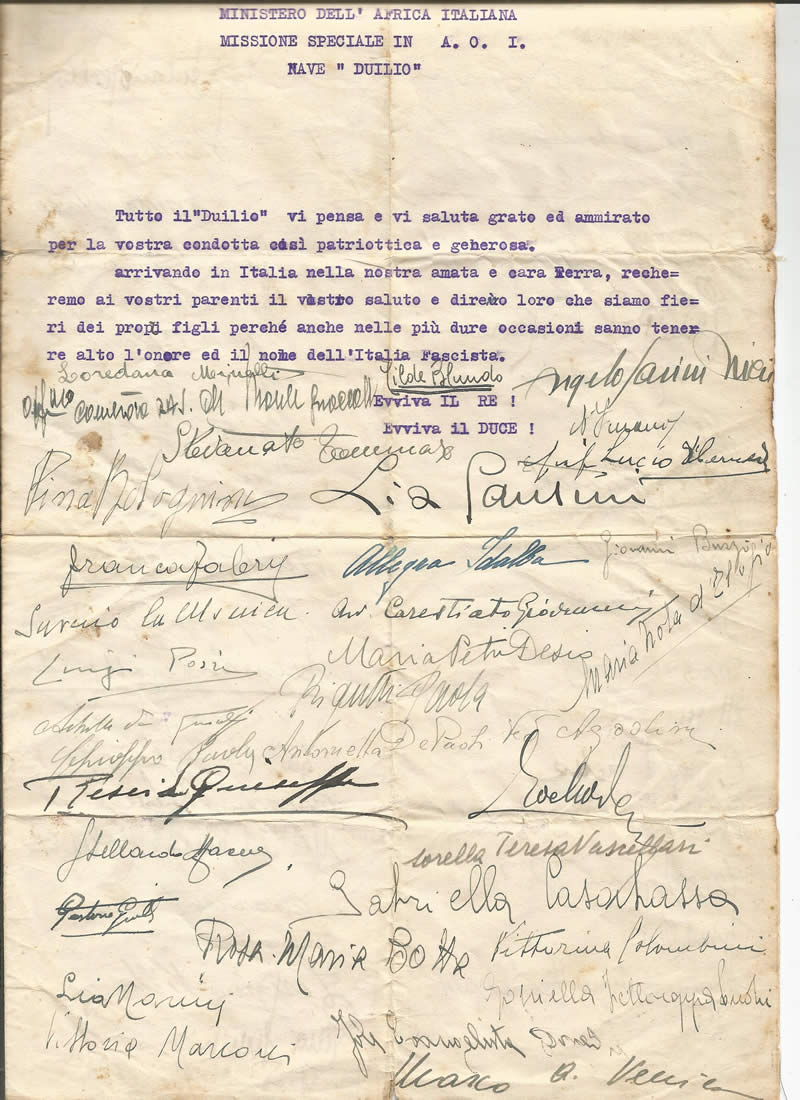 MINISTERO DELL' AFRICA ITALIANA
MISSIONE SPECIALE IN A. O. I.
NAVE " DUILIO"
Tutto il"Duilio" vi pensa e vi saluta grato ed ammirato
per la vostra condotta così patriottica e generosa.
arrivando in Italia nella nostra amata e cara Terra, reche=
remo ai vostri parenti il vostro saluto e diremo loro che siamo fie=
ri dei propi figli perché anche nelle più dure occasioni sanno tene=
re alto l'onore ed il nome dell'Italia Fascista.
Loredana
Tilde Blundo
Angelo
Evviva IL RE !
Evviva il DUCE !
Stefanato Tommaso
Lucio
Pina Bolognini
Lia Santini
Franca Fabris
Allegra Idalba
Giovanni
Saverio La Monica
Av. Carestiato Giovanni
Maria Nota d'
Luigi Rossi
Maria Petri Desio
Rigutti Paola
Schioppo Paola
Antonietta De Paoli
Rescia Giuseppe
Stellardo
sorella Teresa Vascellari
Gabriella Casabassa
Rosa Maria Botta
Vittorina Colombini
Lia Marini
Graziella
Vittoria Marconi
Evangelista
Marco A. Venier